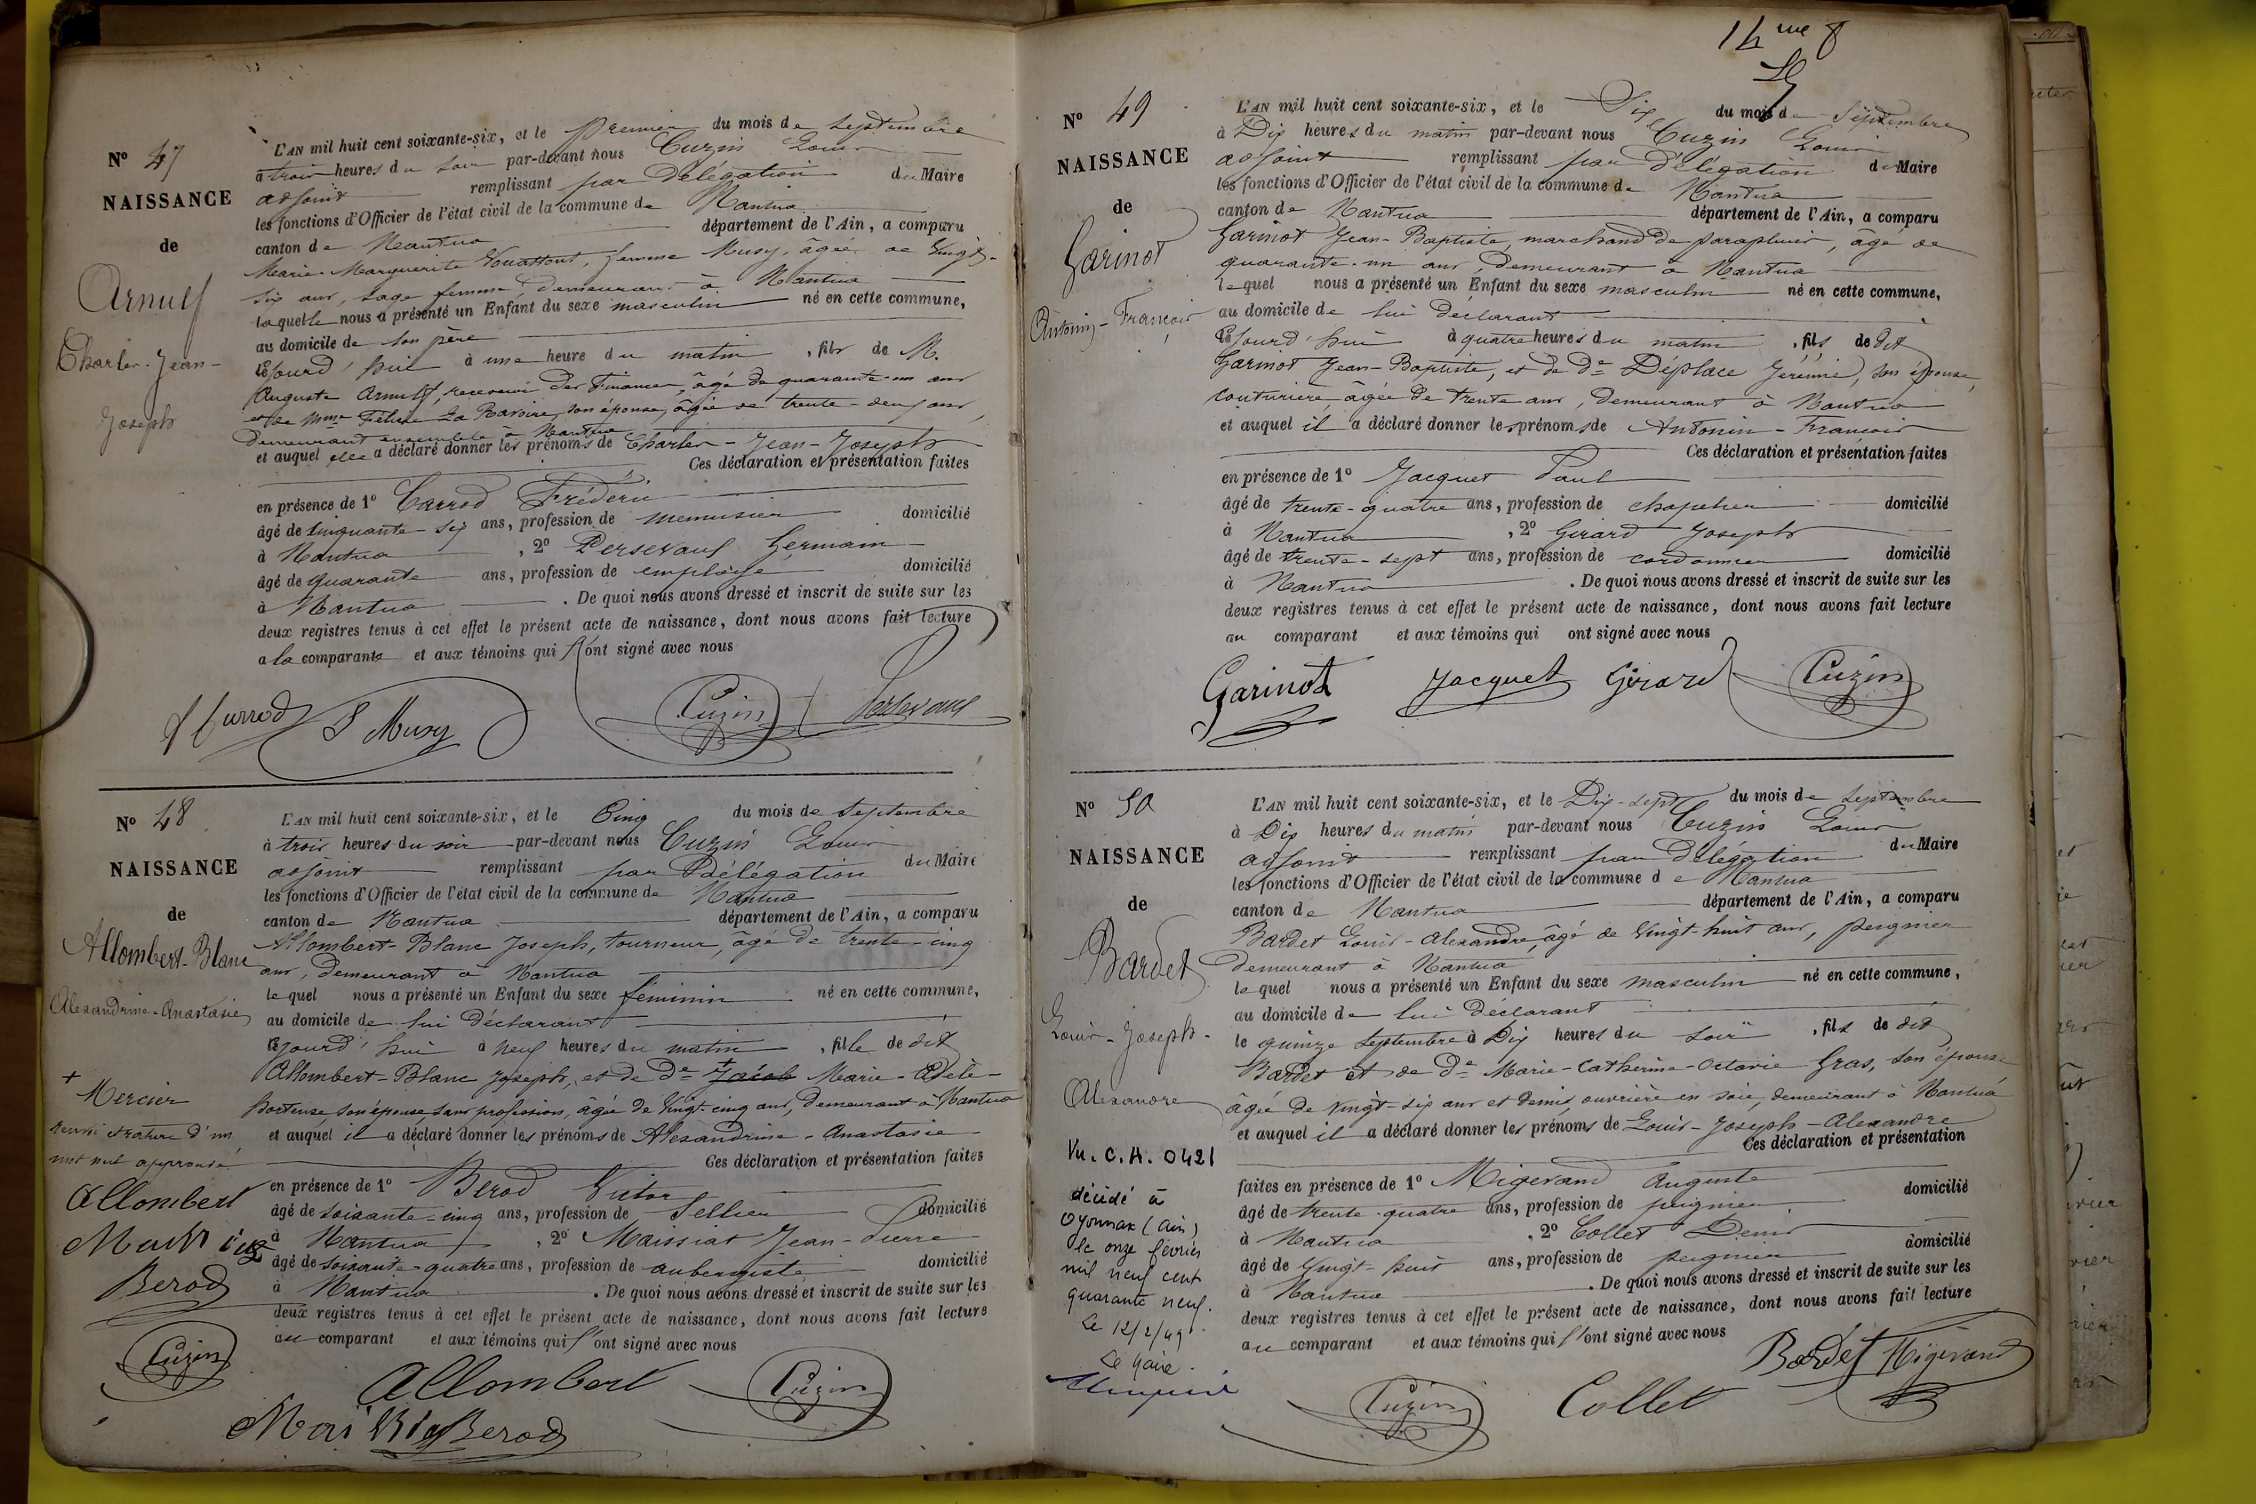 N° 47
NAISSANCE
de
Arnulf
Charles-Jean-
Joseph
L'AN mil huit cent soixante-six, et le premier du mois de septembre
à trois heures du soir par-devant nous Cuzin Louis
adjoint remplissant par Délégation du Maire
les fonctions d'Officier de l'état civil de la commune de Nantua
canton de Nantua département de l'Ain, a comparu
Marie-Marguerite femme Musy, âgée de Vingt-
six ans, sage femme, demeurant à Nantua
laquelle nous a présenté un Enfant du sexe masculin né en cette commune,
au domicile de son père
cejourd'hui à une heure du matin, fils de M.
Auguste Arnulf, receveur des Finances, âgé de quarante-un ans
et de Mme son épouse, âgée de trente-deux ans,
demeurant ensemble à Nantua
et auquel elle a déclaré donner les prénoms de Charles-Jean-Joseph
Ces déclaration et présentation faites
en présence de 1° Carrod Frédéric
âgé de cinquante-six ans, profession de menuisier domicilié
à Nantua, 2° Persevaus Germain
âgé de quarante ans, profession de employé domicilié
à Nantua. De quoi nous avons dressé et inscrit de suite sur les
deux registres tenus à cet effet le présent acte de naissance, dont nous avons fait lecture
a la comparante et aux témoins qui ont signé avec nous
Musy Cuzin
N° 48
NAISSANCE
de
Allombert-Blanc
Alexandrine-Anastasie
+
Mercier
renvoi et rature d'un
mot nul approuvé
Allombert
Berod
Cuzin
L'AN mil huit cent soixante-six, et le Cinq du mois de Septembre
à trois heures du soir par-devant nous Cuzin Louis
adjoint remplissant par Délégation du Maire
les fonctions d'Officier de l'état civil de la commune de Nantua
canton de Nantua département de l'Ain, a comparu
Allombert-Blanc Joseph, tourneur, âgé de trente-cinq
ans, demeurant à Nantua
lequel nous a présenté un Enfant du sexe féminin né en cette commune,
au domicile de lui déclarant
cejourd'hui à neuf heures du matin, fille de dit
Allombert-Blanc Joseph, et de De Jacob Marie-Adèle-
hortense son épouse sans profession, âgée de Vingt-cinq ans, demeurant à Nantua
et auquel il a déclaré donner les prénoms de Alexandrine-Anastasie
Ces déclaration et présentation faites
en présence de 1° Berod Victor
âgé de soixante-cinq ans, profession de Sellier domicilié
à Nantua, 2° Maissiat Jean-Pierre
âgé de soixante-quatre ans, profession de aubergiste domicilié
à Nantua. De quoi nous avons dressé et inscrit de suite sur les
deux registres tenus à cet effet le présent acte de naissance, dont nous avons fait lecture
au comparant et aux témoins qui ont signé avec nous
Allombert Cuzin
Berod
N° 49
NAISSANCE
de
Garinot
Antonin-François
L'AN mil huit cent soixante-six, et le Dix du mois de Septembre
à Dix heures du matin par-devant nous Cuzin Louis
adjoint remplissant par Délégation du Maire
les fonctions d'Officier de l'état civil de la commune de Nantua
canton de Nantua département de l'Ain, a comparu
Garinot Jean-Baptiste, marchand de parapluies, âgé de
quarante-un ans, demeurant à Nantua
lequel nous a présenté un Enfant du sexe masculin né en cette commune,
au domicile de lui déclarant
cejourd'hui à quatre heures du matin, fils de dit
Garinot Jean-Baptiste, et de De Déplace Jérémie, son épouse,
couturière, âgée de trente ans, demeurant à Nantua
et auquel il a déclaré donner les prénoms de Antonin-François
Ces déclaration et présentation faites
en présence de 1° Jacquet Paul
âgé de trente-quatre ans, profession de chapelier domicilié
à Nantua, 2° Girard Joseph
âgé de trente-sept ans, profession de cordonnier domicilié
à Nantua. De quoi nous avons dressé et inscrit de suite sur les
deux registres tenus à cet effet le présent acte de naissance, dont nous avons fait lecture
au comparant et aux témoins qui ont signé avec nous
Garinot Jacquet Girard Cuzin
N° 50
NAISSANCE
de
Bardet
Louis-Joseph-
Alexandre
Vu. C.H. 0421
décédé à
Oyonnax (Ain)
le onze février
mil neuf cent
quarante neuf.
Le 12/2/49.
Le Maire.
L'AN mil huit cent soixante-six, et le Dix-sept du mois de septembre
à Dix heures du matin par-devant nous Cuzin Louis
adjoint remplissant par Délégation du Maire
les fonctions d'Officier de l'état civil de la commune de Nantua
canton de Nantua département de l'Ain, a comparu
Bardet Louis-Alexandre, âgé de Vingt-huit ans, peignier
demeurant à Nantua
lequel nous a présenté un Enfant du sexe masculin né en cette commune,
au domicile de lui déclarant
le quinze septembre à Dix heures du soir, fils de dit
Bardet et de De Marie-Catherine-Octavie Gras, son épouse
âgée de vingt-six ans et demi, ouvrière en soie, demeurant à Nantua
et auquel il a déclaré donner les prénoms de Louis-Joseph-Alexandre
Ces déclaration et présentation
faites en présence de 1° Migerand Auguste
âgé de trente-quatre ans, profession de peignier domicilié
à Nantua. 2° Collet Denis
âgé de Vingt-huit ans, profession de peignier domicilié
à Nantua. De quoi nous avons dressé et inscrit de suite sur les
deux registres tenus à cet effet le présent acte de naissance, dont nous avons fait lecture
au comparant et aux témoins qui ont signé avec nous
Bardet Migerand
Cuzin Collet